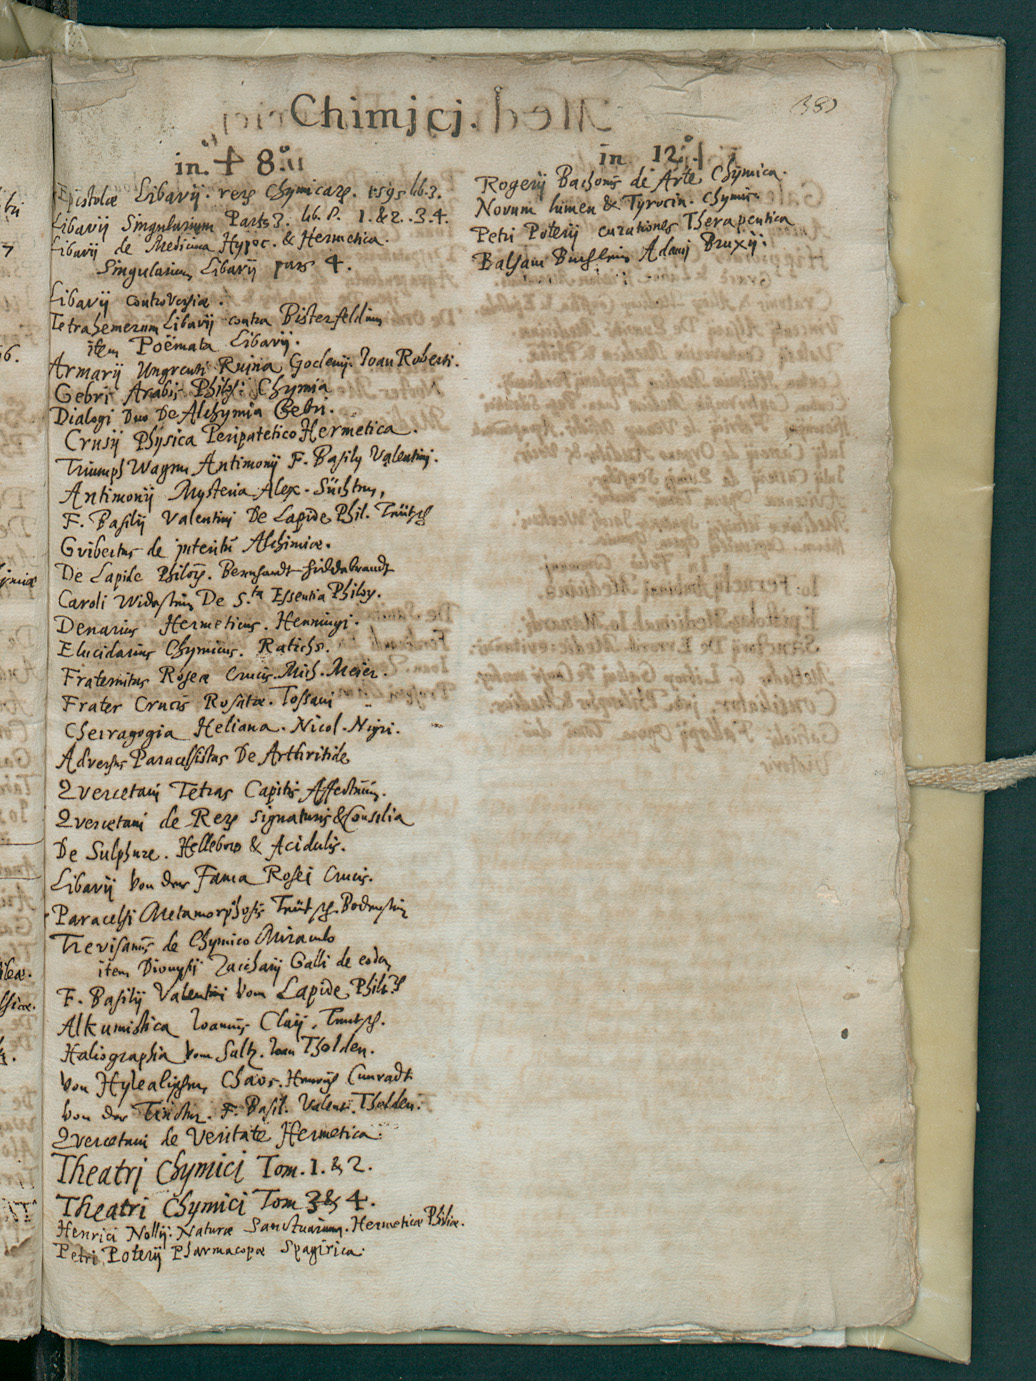 Chimjcj.
383
in. 4 8.º
Epistolæ Libavij. rerũ Chymicarũ. 1595 lib 3.
Libavij Singularium Parts 3. lib. 8. 1. & 2. .3. 4.
Libavij de Medicina Hypoc. & Hermetica.
Singularium Libavij pars 4.
Libavij controversiæ.
Tetrahemerum Libavij contra Bisterfeldium
item Poëmata Libavij.
Armarij Ungventi Ruina Goclenij. Ioan Roberti.
Gebri Arabis Philos: Chymia
Dialogi Duo De Alchymia Gebri.
Crusij Physica Peripatetico Hermetica.
Triumph Wagen Antimonij F. Basilij Valentini.
Antimonij Mysteria Alex. Süchten,
F. Basilij Valentini De Lapide Phil. Teütsch
Gvibertus de interitũ Alchimiæ.
De Lapide Philos. Bernhardt Hildebrandt
Caroli Widastein De 5.ta Essentia Philos.
Denarius Hermeticus. Henningi.
Elucidarius Chymicus. Ratichs.
Fraternitas Roseæ Crucis. Mich. Meier.
Frater Crucis Rosatæ. Tossani
Cheiragogia Heliana. Nicol. Nigri.
Adversus Paracelsistas De Arthritide
Quercetani Tetras Capitis Affectuum.
Quercetani de Rerũ signaturis & Consilia
De Sulphure. Helleboro & Acidulis.
Libavij von der Fama Rosei Crucis.
Paracelsi Metamorphosis Teütsch. Bodenstein
Trevisanus de Chymico Miraculo
item Dionysij Zacharij Galli de eodem
F. Basilij Valentini vom Lapide Philos
Alkumistica Ioannis Claij. Teutsch.
Haliographia vom Saltz. Ioan Tholden.
Von Hylealischen Chaos. Henrich Cunradt
von der Tinctur. F. Basil. Valenti. Tholden.
Quercetani de Veritate Hermetica.
Theatrj Chymici Tom. 1. & 2.
Theatri Chymici Tom 3 & 4.
Henrici Nollij. Naturæ Sanctuarium. Hermeticæ Philiæ.
Petri Poterij Pharmacopæ Spagirica.
in 12.º
Rogerij Bachonis de Arte Chymica.
Novum lumen & Tyrocin. Chymic.
Petri Poterij curationes Therapeutica
Balsam Büchlein Adami Bruxij.